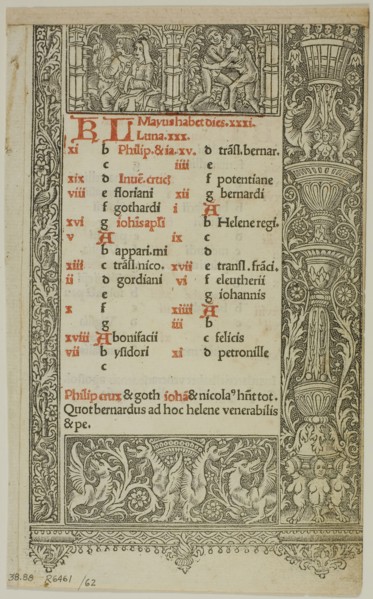 KL Mayus habet dies. xxxi.
Luna. xxx.
xi b Philip. & ia. xv. d trãsl. bernar.
c iiii e
xix d Inuē. cruci f potentiane
viii e floriani xii g bernardi
f gothardi i A
xvi g iohis apli b Helene regi.
v A ix c
b appari. mi d
xiii c trãsl. nico. xvii e transl. frãci.
ii d gordiani vi f eleutherii
e g iohannis
x f xiiii A
g iii b
xviii A bonifacii c felicis
vii b ysidori xi d petronille
c
Philip crux & goth iohã & nicolaꝰ hñt tot.
Quot bernardus ad hoc helene venerabilis
& pe.
38.88 R6461 /62